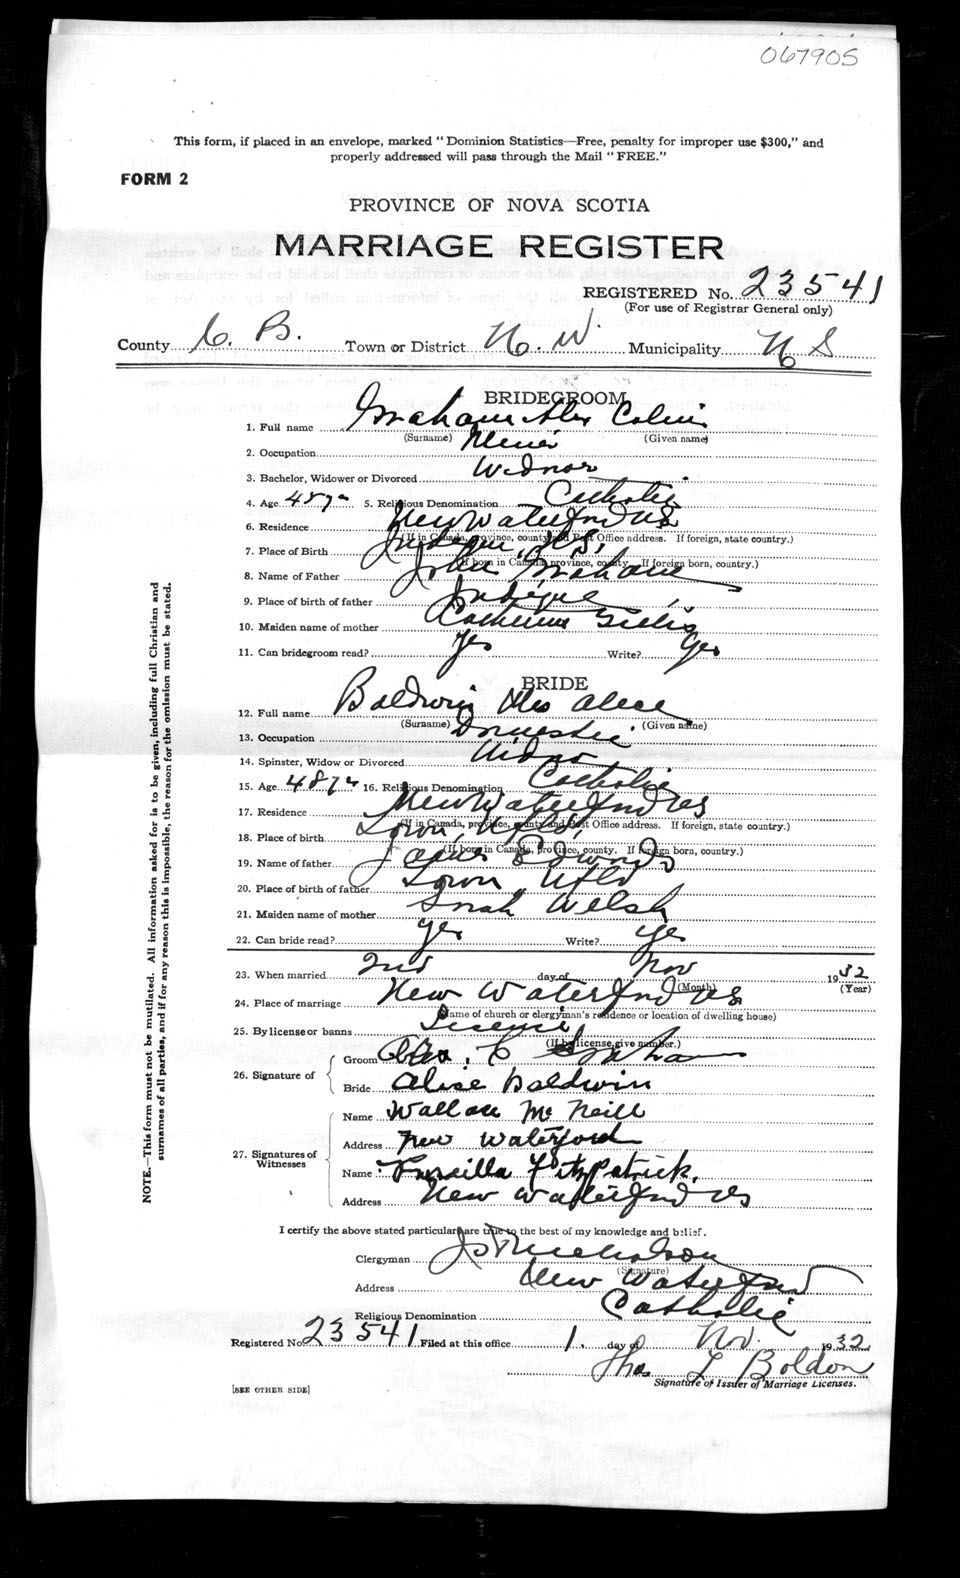 067905
This form, if placed in an envelope, marked "Dominion Statistics—Free, penalty for improper use $300," and
properly addressed will pass through the Mail "FREE."
FORM 2
PROVINCE OF NOVA SCOTIA
MARRIAGE REGISTER
REGISTERED No. 23541
(For use of Registrar General only)
County C. B. Town or District N. W. Municipality N S
BRIDEGROOM
1. Full name Graham Alex Colin
(Surname) (Given name)
2. Occupation Miner
3. Bachelor, Widower or Divorced Widower
4. Age 48 yrs 5. Religious Denomination Catholic
6. Residence New Waterford NS
(If in Canada, province, county and Post Office address. If foreign, state country.)
7. Place of Birth Judique, N.S.
(If born in Canada, province, county. If foreign born, country.)
8. Name of Father John Graham
9. Place of birth of father Judique
10. Maiden name of mother Catherine Gillis
11. Can bridegroom read? Yes Write? Yes
BRIDE
12. Full name Baldwin Mrs Alice
(Surname) (Given name)
13. Occupation Domestic
14. Spinster, Widow or Divorced Widow
15. Age 48 yrs 16. Religious Denomination Catholic
17. Residence New Waterford NS
(If in Canada, province, county and Post Office address. If foreign, state country.)
18. Place of birth Nfld
(If born in Canada, province, county. If foreign born, country.)
19. Name of father James Edwards
20. Place of birth of father Nfld
21. Maiden name of mother Sarah Welsh
22. Can bride read? Yes Write? Yes
23. When married 2nd day of Nov 1932
(Month) (Year)
24. Place of marriage New Waterford NS
(Name of church or clergyman's residence or location of dwelling house)
25. By license or banns License
(If by license, give number.)
26. Signature of Groom Alex. C Graham
Bride Alice Baldwin
27. Signatures of Witnesses Name Wallace McNeill
Address New Waterford
Name Priscilla Fitzpatrick.
Address New Waterford NS
I certify the above stated particulars are true to the best of my knowledge and belief.
Clergyman Nicholson
(Signature)
Address New Waterford
Religious Denomination Catholic
Registered No. 23541 Filed at this office 1. day of Nov. 1932
Thos L Boldon
Signature of Issuer of Marriage Licenses.
[SEE OTHER SIDE]
NOTE.—This form must not be mutilated. All information asked for is to be given, including full Christian and
surnames of all parties, and if for any reason this is impossible, the reason for the omission must be stated.